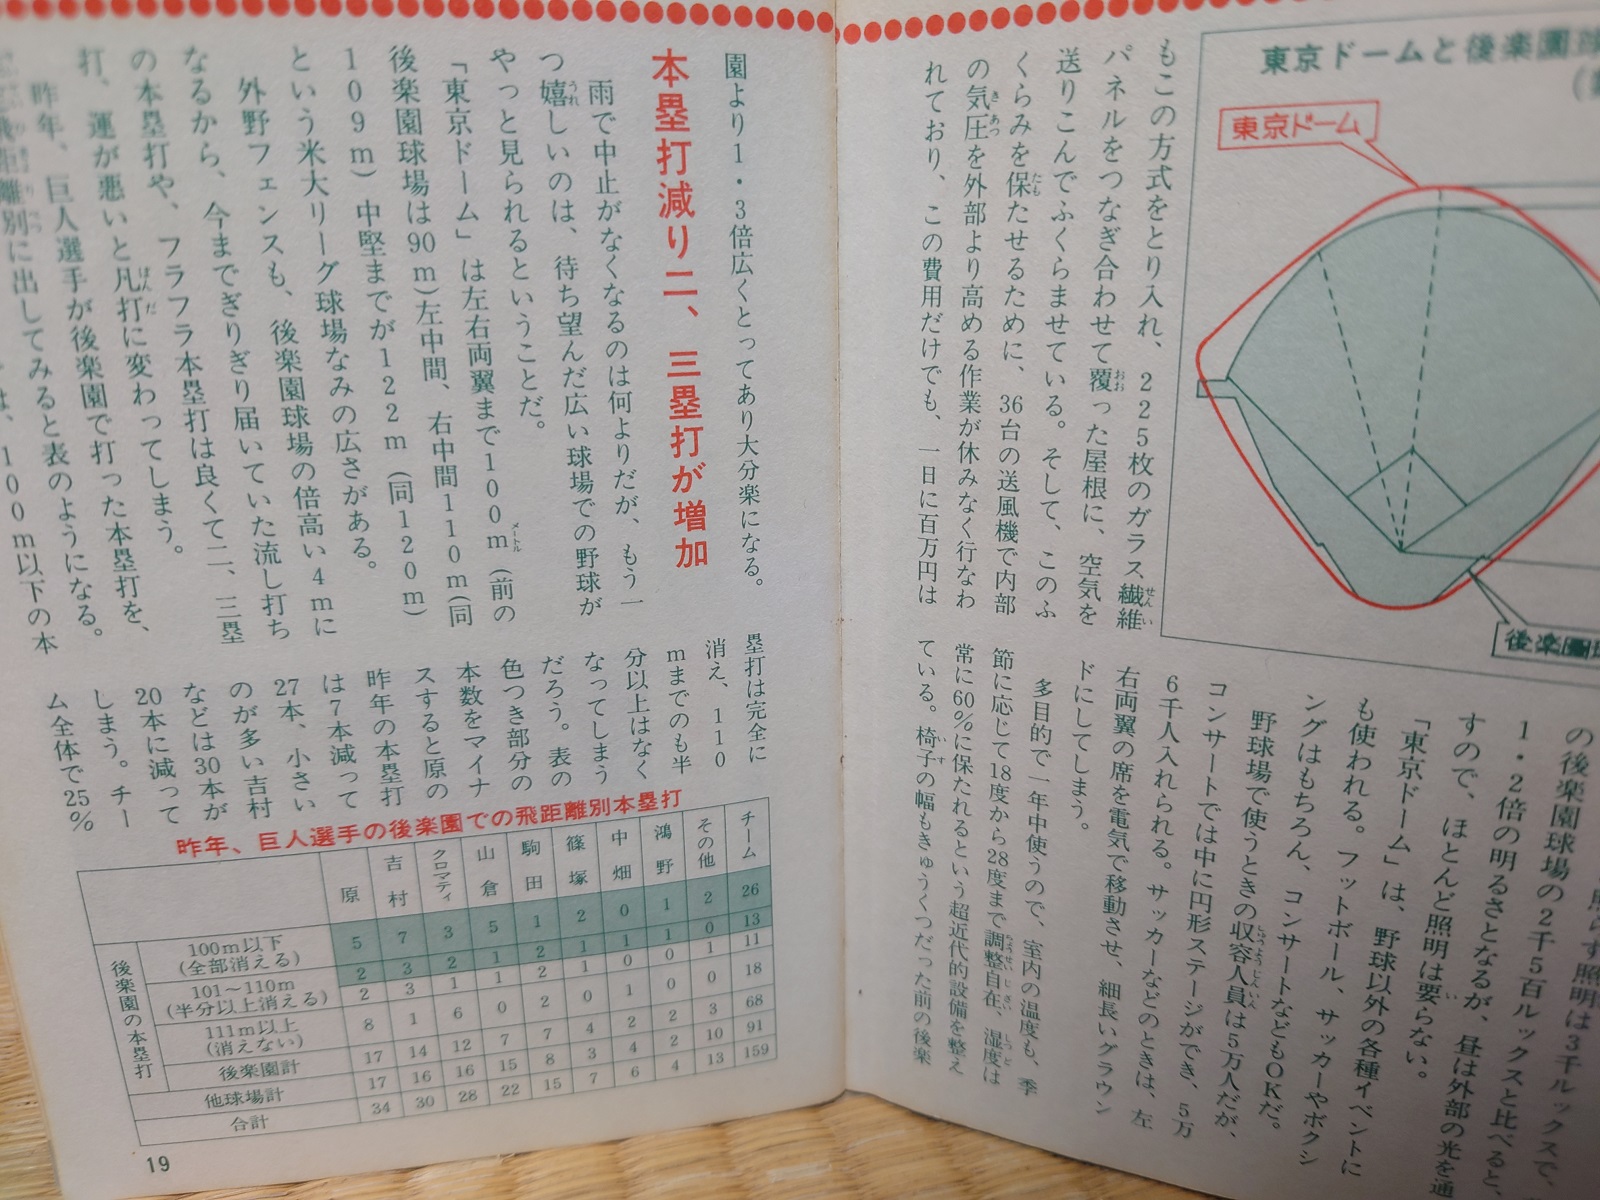 東京ドームと後楽園球
東京ドーム
後楽園球
もこの方式をとり入れ、225枚のガラス繊維
パネルをつなぎ合わせて覆った屋根に、空気を
送りこんでふくらませている。そして、このふ
くらみを保たせるために、36台の送風機で内部
の気圧を外部より高める作業が休みなく行なわ
れており、この費用だけでも、一日に百万円は
の後楽園球場の2千5百ルックスと比べると、
1・2倍の明るさとなるが、昼は外部の光を通
すので、ほとんど照明は要らない。
「東京ドーム」は、野球以外の各種イベントに
も使われる。フットボール、サッカーやボクシ
ングはもちろん、コンサートなどもOKだ。
野球場で使うときの収容人員は5万人だが、
コンサートでは中に円形ステージができ、5万
6千人入れられる。サッカーなどのときは、左
右両翼の席を電気で移動させ、細長いグラウン
ドにしてしまう。
多目的で一年中使うので、室内の温度も、季
節に応じて18度から28度まで調整自在、湿度は
常に60%に保たれるという超近代的設備を整え
ている。椅子の幅もきゅうくつだった前の後楽
園より1・3倍広くとってあり大分楽になる。
本塁打減り二、三塁打が増加
雨で中止がなくなるのは何よりだが、もう一
つ嬉しいのは、待ち望んだ広い球場での野球が
やっと見られるということだ。
「東京ドーム」は左右両翼まで100m(前の
後楽園球場は90m)左中間、右中間110m(同
109m)中堅までが122m(同120m)
という米大リーグ球場なみの広さがある。
外野フェンスも、後楽園球場の倍高い4mに
なるから、今までぎりぎり届いていた流し打ち
の本塁打や、フラフラ本塁打は良くて二、三塁
打、運が悪いと凡打に変わってしまう。
昨年、巨人選手が後楽園で打った本塁打を、
飛距離別に出してみると表のようになる。
は、100m以下の本
塁打は完全に
消え、110
mまでのも半
分以上はなく
なってしまう
だろう。表の
色つき部分の
本数をマイナ
スすると原の
昨年の本塁打
は7本減って
27本、小さい
のが多い吉村
などは30本が
20本に減って
しまう。チー
ム全体で25%
昨年、巨人選手の後楽園での飛距離別本塁打
原 吉村 クロマティ 山倉 駒田 篠塚 中畑 鴻野 その他 チーム
後楽園の本塁打
100m以下(全部消える) 5 7 3 5 1 2 0 1 2 26
101〜110m(半分以上消える) 2 3 2 1 2 1 1 1 0 13
2 3 1 1 2 1 0 0 1 11
111m以上(消えない) 8 1 6 0 2 0 1 0 0 18
後楽園計 17 14 12 7 7 4 2 2 3 68
他球場計 17 16 16 15 8 3 4 2 10 91
合計 34 30 28 22 15 7 6 4 13 159
19